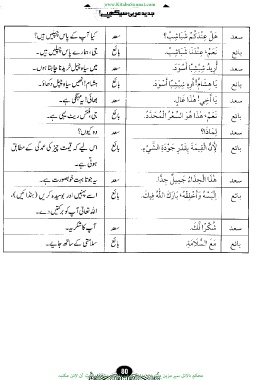 www.KitaboSunnat.com
جدید عربی سیکھیے!
سعد هَلْ عِنْدَكُمْ شَبَاشِبُ؟ سعد کیا آپ کے پاس چپلیں ہیں؟
بائع نَعَمْ، عِنْدَنَا شَبَاشِبُ. بائع جی، ہمارے پاس چپلیں ہیں۔
سعد أُرِيدُ شِبْشِبًا أَسْوَدَ. سعد میں سیاہ چپل خریدنا چاہتا ہوں۔
بائع يَا هِشَامُ! أَرِهِ شِبْشِبًا أَسْوَدَ. بائع ہشام! انھیں سیاہ چپل دکھاؤ۔
سعد يَا أَخِي! هٰذَا غَالٍ. سعد بھائی! یہ مہنگی ہے۔
بائع نَعَمْ، هٰذَا هُوَ السِّعْرُ الْمُحَدَّدُ. بائع جی، فکس ریٹ یہی ہے۔
سعد لِمَاذَا؟ سعد وہ کیوں؟
بائع لِأَنَّ الْقِيمَةَ بِقَدْرِ جَوْدَةِ الشَّيْءِ. بائع اس لیے کہ قیمت چیز کی عمدگی کے مطابق
ہوتی ہے۔
سعد هٰذَا الْحِذَاءُ جَمِيلٌ جِدًّا. سعد یہ جوتا بہت خوبصورت ہے۔
بائع اِلْبَسْهُ وَأَخْلِقْهُ، بَارَكَ اللّٰهُ فِيكَ. بائع اسے پہنیں اور بوسیدہ کریں (ہنڈائیں)،
اللہ تعالیٰ آپ کو برکتیں دے۔
سعد شُكْرًا لَكَ. سعد آپ کا شکریہ۔
بائع مَعَ السَّلَامَةِ. بائع سلامتی کے ساتھ جایے۔
80
محکم دلائل سے مزین متنوع و منفرد موضوعات پر مشتمل مفت آن لائن مکتبہ